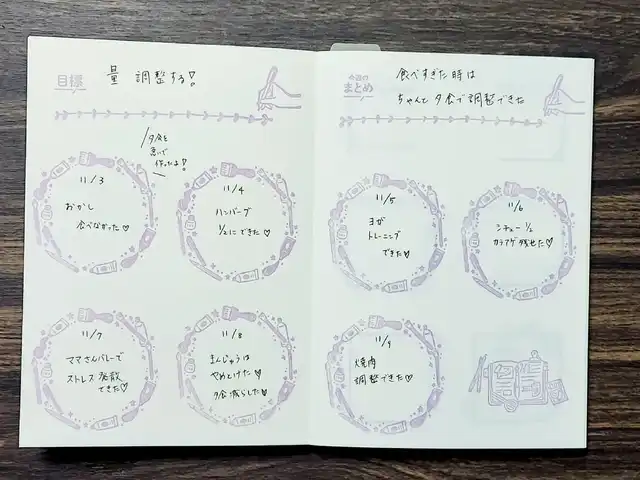 目標
量 調整する!
夕食を
急いで
作ったよ!
11/3
おかし
食べなかった♡
11/4
ハンバーグ
1/2にできた♡
11/7
ママさんバレーで
ストレス発散
できた♡
11/8
まんじゅうは
やめとけた♡
夕食減らした♡
今週の
まとめ
食べすぎた時は
ちゃんと夕食で調整できた
11/5
ヨガ
トレーニング
できた♡
11/6
シチュー 1/2
カラアゲ残せた♡
11/9
焼肉
調整できた♡